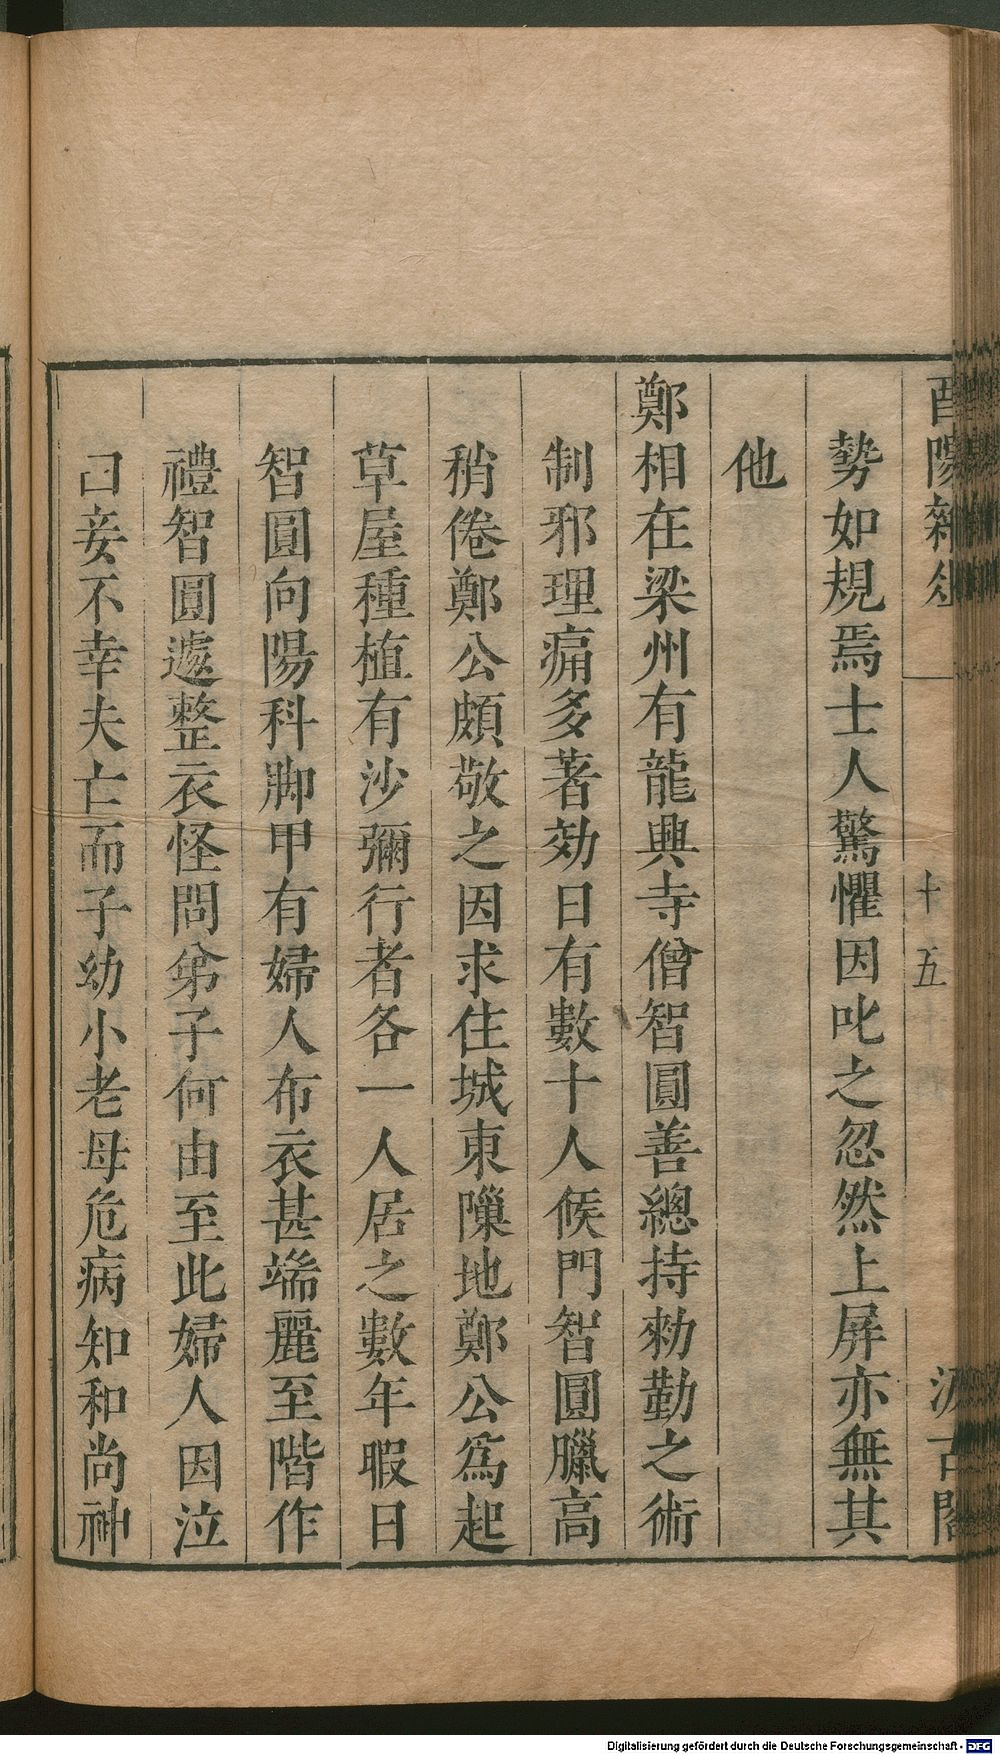 酉陽雜俎
十五
汲古閣
勢如規焉士人驚懼因叱之忽然上屏亦無其
他
鄭相在梁州有龍興寺僧智圓善總持勑勤之術
制邪理痛多著効日有數十人候門智圓臘高
稍倦鄭公頗敬之因求住城東隟地鄭公爲起
草屋種植有沙彌行者各一人居之數年暇日
智圓向陽科脚甲有婦人布衣甚端麗至階作
禮智圓遽整衣怪問弟子何由至此婦人因泣
曰妾不幸夫亡而子幼小老母危病知和尚神
Digitalisierung gefördert durch die Deutsche Forschungsgemeinschaft - DFG